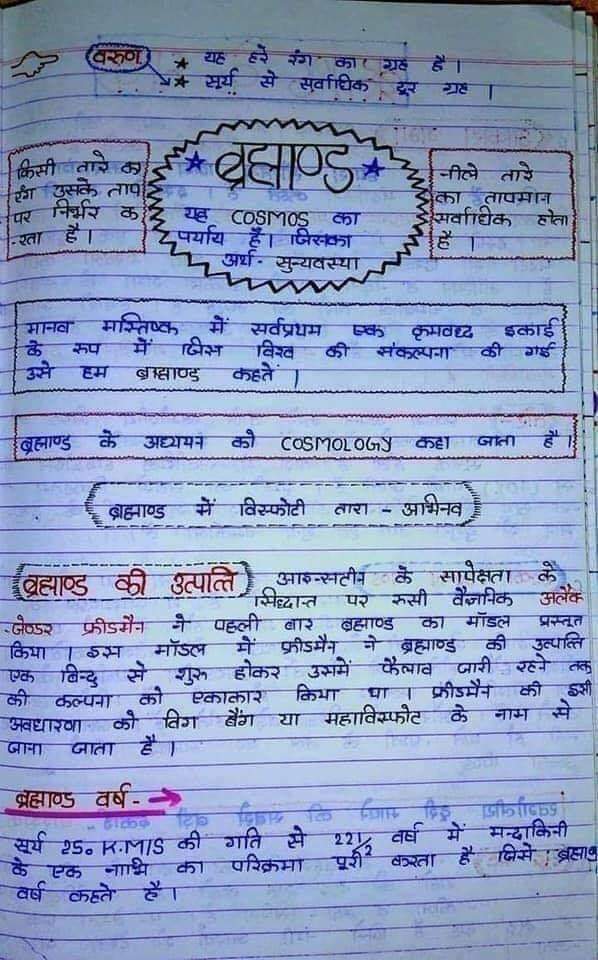 वरुण
★ यह हरे रंग का ग्रह है।
★ सूर्य से सर्वाधिक दूर ग्रह।
किसी तारे का
रंग उसके ताप
पर निर्भर क
-रता है।
★ ब्रह्माण्ड ★
यह COSMOS का
पर्याय है। जिसका
अर्थ - सुव्यवस्था
नीले तारे
का तापमान
सर्वाधिक होता
है।
मानव मस्तिष्क में सर्वप्रथम एक क्रमवध्द इकाई
के रूप में जिस विश्व की संकल्पना की गई
उसे हम ब्राह्माण्ड कहतें।
ब्रह्माण्ड के अध्ययन को COSMOLOGY कहा जाता है।
ब्रह्माण्ड में विस्फोटी तारा - अभिनव
ब्रह्माण्ड की उत्पत्ति आइन्सटीन के सापेक्षता के
सिध्दान्त पर रुसी वैज्ञानिक अलैक
-जेण्डर फ्रीडमैन ने पहली बार ब्रह्माण्ड का मॉडल प्रस्तुत
किया। इस मॉडल में फ्रीडमैन ने ब्रह्माण्ड की उत्पत्ति
एक बिन्दु से शुरु होकर उसमें फैलाव जारी रहने तक
की कल्पना को एकाकार किया था। फ्रीडमैन की इसी
अवधारणा को विग बैंग या महाविस्फोट के नाम से
जाना जाता है।
ब्रह्माण्ड वर्ष - →
सूर्य 250 K.M/S की गति से 22 1/2 वर्ष में मन्दाकिनी
के एक नाभि का परिक्रमा पूरी करता है जिसे ब्रह्माण्ड
वर्ष कहते है।